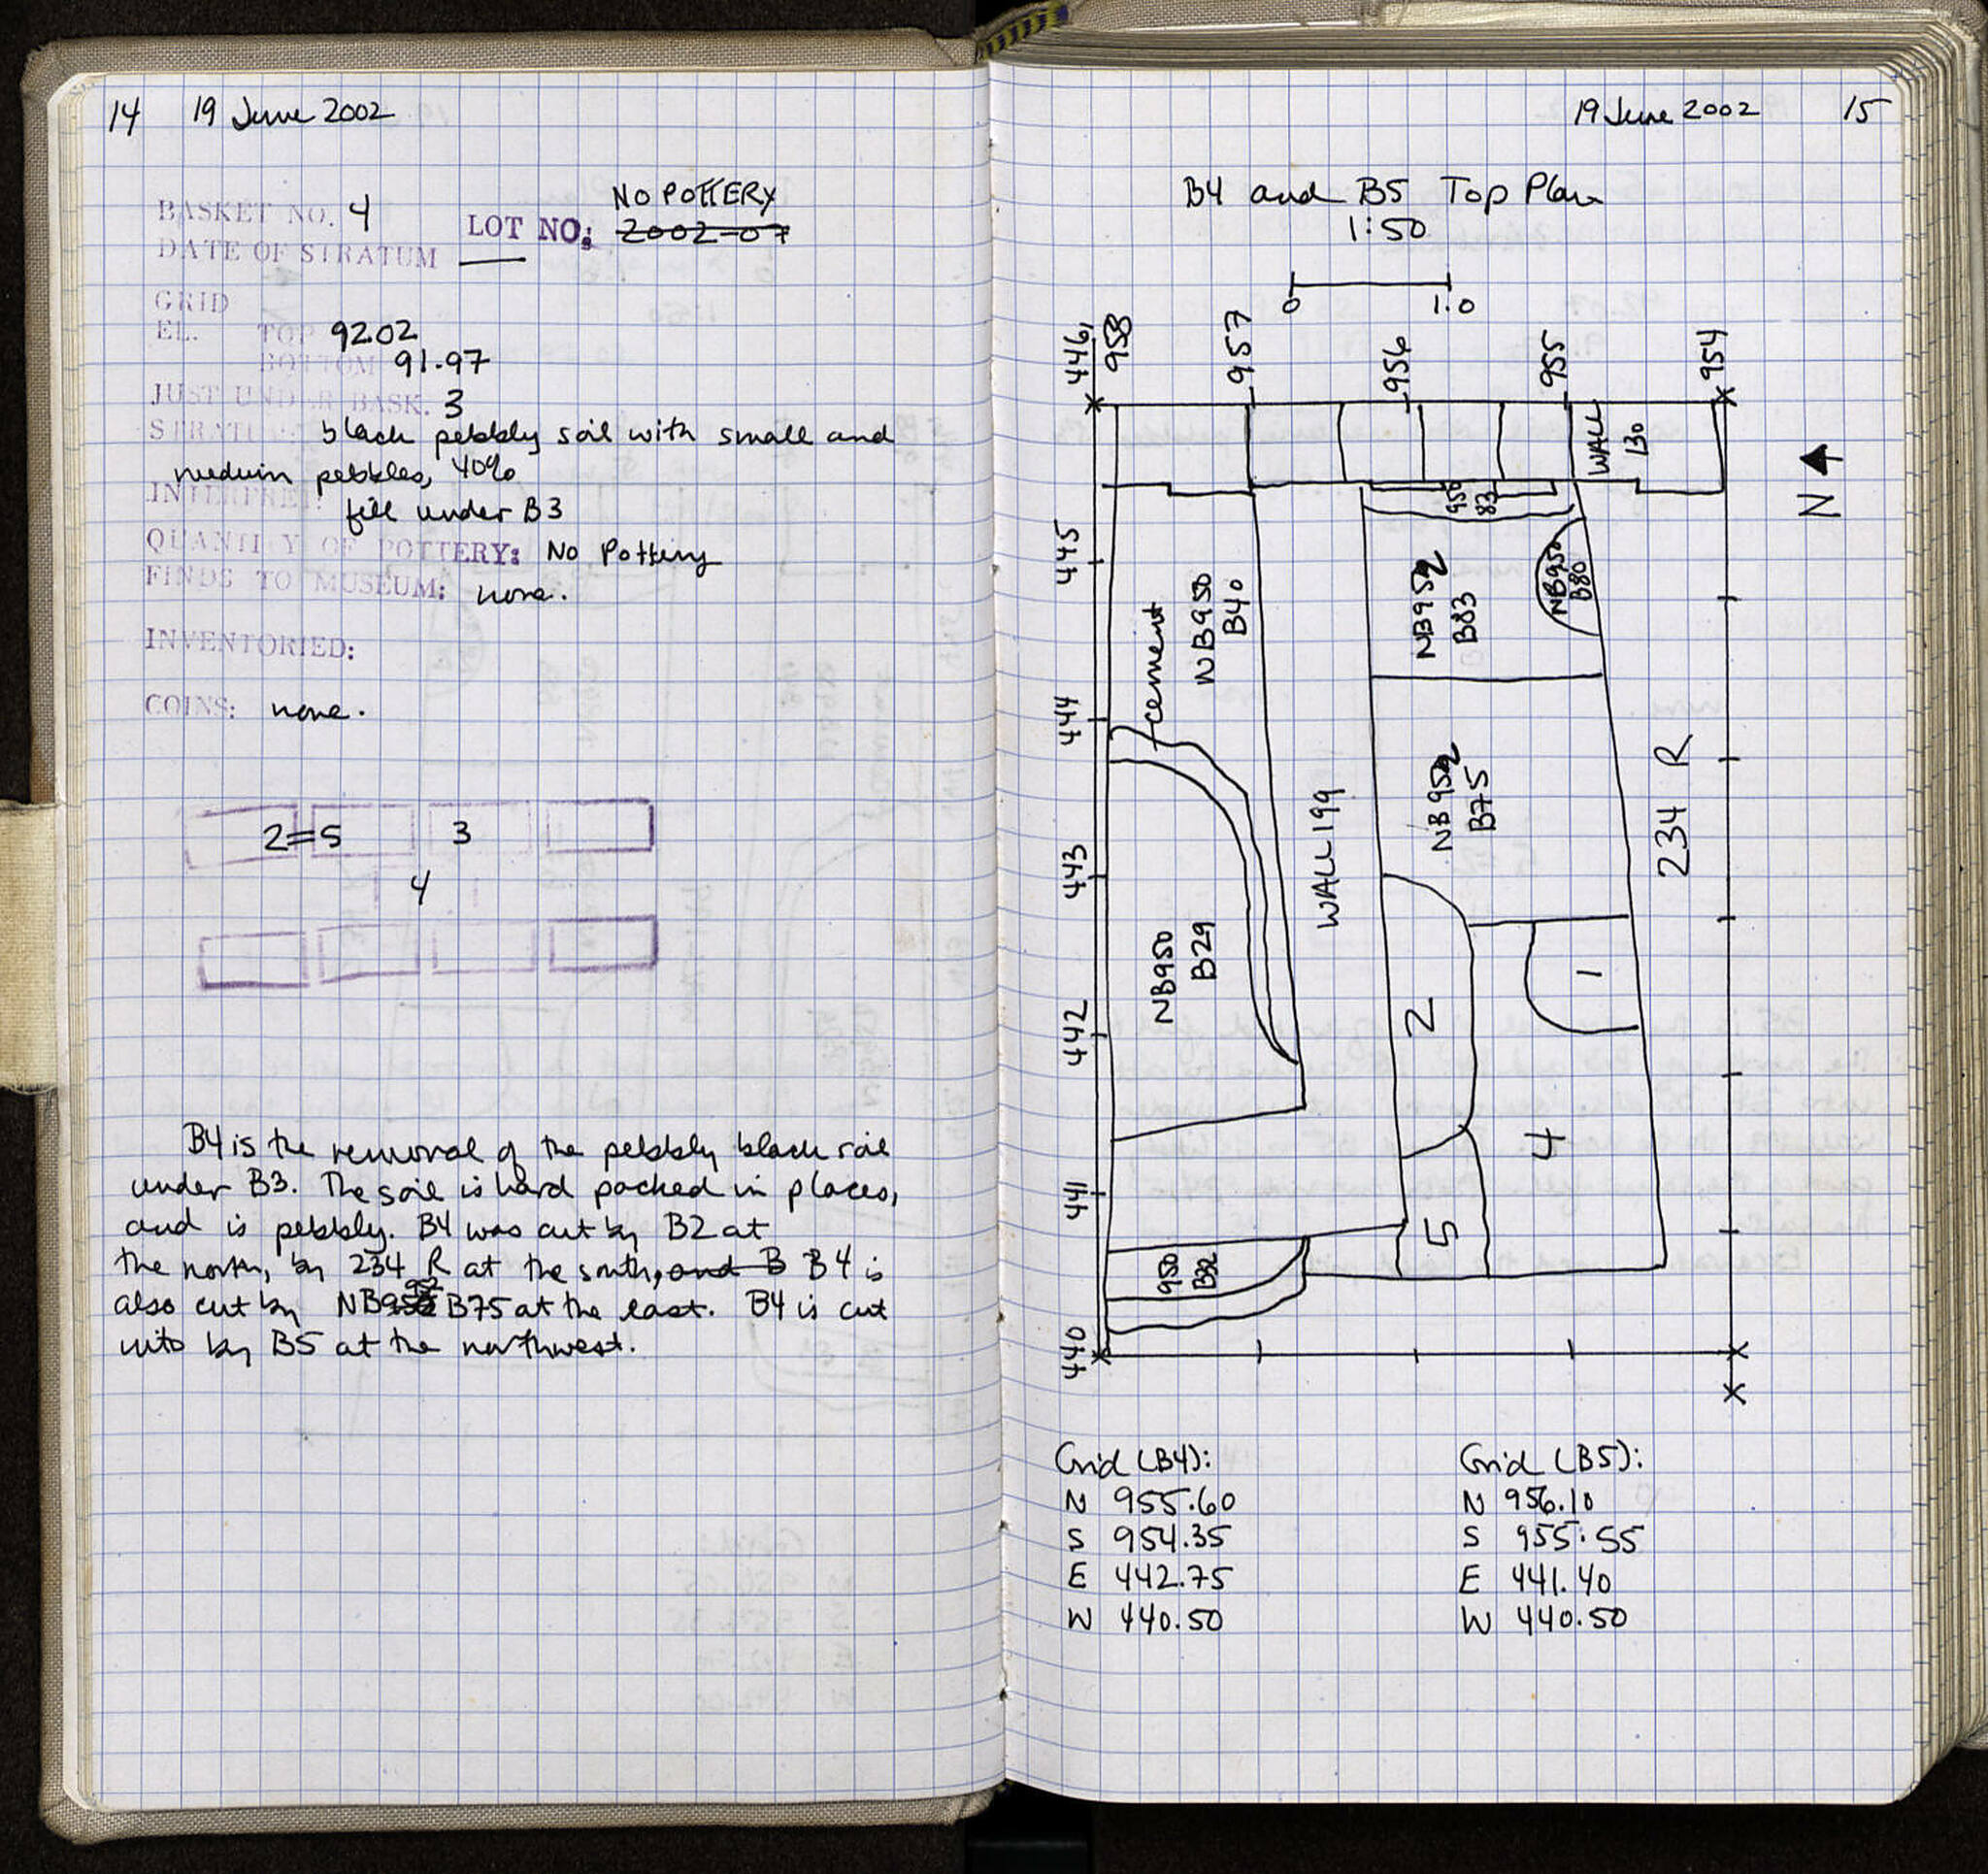 14 19 June 2002
NO POTTERY
BASKET NO. 4 LOT NO: 2002-07
DATE OF STRATUM —
GRID
EL. TOP 92.02
BOTTOM 91.97
JUST UNDER BASK. 3
STRATUM: black pebbly soil with small and
medium pebbles, 40%
INTERPRET:
fill under B3
QUANTITY OF POTTERY: No Pottery
FINDS TO MUSEUM: none.
INVENTORIED:
COINS: none.
2=5 3
4
B4 is the removal of the pebbly black soil
under B3. The soil is hard packed in places,
and is pebbly. B4 was cut by B2 at
the north, by 234 R at the south, and B B4 is
also cut by NB952 B75 at the east. B4 is cut
into by B5 at the northwest.
19 June 2002 15
B4 and B5 Top Plan
1:50
0 1.0
446 958 957 956 955 954
WALL 130
N
950 83
445
cement
NB950 B40
NB952 B83
NB950 B80
444
NB952 B75
234 R
443
WALL 199
NB950 B29
1
442
2
4
441
5
950 B32
440
Grid (B4): Grid (B5):
N 955.60 N 956.10
S 954.35 S 955.55
E 442.75 E 441.40
W 440.50 W 440.50